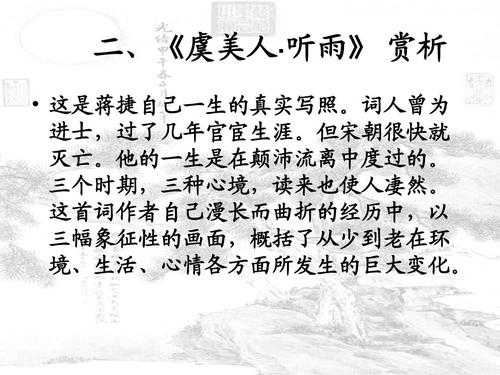 二、《虞美人·听雨》 赏析
• 这是蒋捷自己一生的真实写照。词人曾为
进士，过了几年官宦生涯。但宋朝很快就
灭亡。他的一生是在颠沛流离中度过的。
三个时期，三种心境，读来也使人凄然。
这首词作者自己漫长而曲折的经历中，以
三幅象征性的画面，概括了从少到老在环
境、生活、心情各方面所发生的巨大变化。